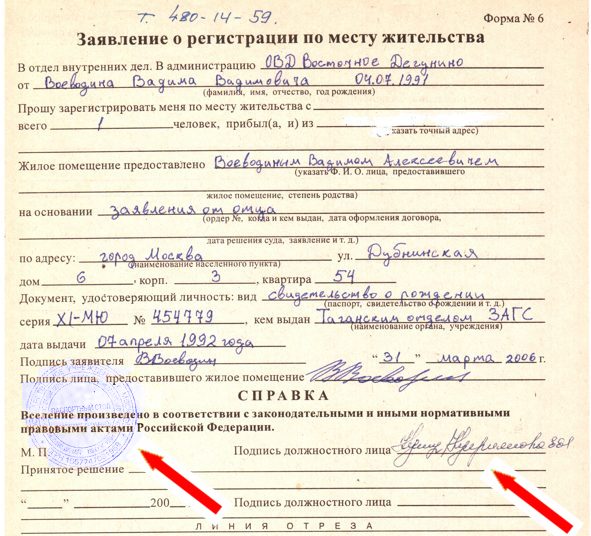 т. 480-14-59.
Форма № 6
Заявление о регистрации по месту жительства
В отдел внутренних дел. В администрацию ОВД Восточное Дегунино
от Воеводина Вадима Вадимовича 04.07.1991
(фамилия, имя, отчество, год рождения)
Прошу зарегистрировать меня по месту жительства с
всего 1 человек, прибыл(а, и) из
казать точный адрес)
Жилое помещение предоставлено Воеводиным Вадимом Алексеевичем
(указать Ф. И. О. лица, предоставившего
жилое помещение, степень родства)
на основании заявления от отца
(ордер №, когда и кем выдан, дата оформления договора,
дата решения суда, заявление и т. д.)
по адресу: город Москва ул. Дубнинская
(наименование населенного пункта)
дом 6, корп. 3, квартира 54
Документ, удостоверяющий личность: вид свидетельство о рождении
(паспорт, свидетельство о рождении и т. д.)
серия XI-МЮ № 454779, кем выдан Таганским отделом ЗАГС
(наименование органа, учреждения)
дата выдачи 07 апреля 1992 года
Подпись заявителя ВВоеводин "31" марта 2006 г.
Подпись лица, предоставившего жилое помещение
СПРАВКА
Вселение произведено в соответствии с законодательными и иными нормативными
правовыми актами Российской Федерации.
М. П. Подпись должностного лица
Принятое решение
"___" 200 Подпись должностного лица
ЛИНИЯ ОТРЕЗА